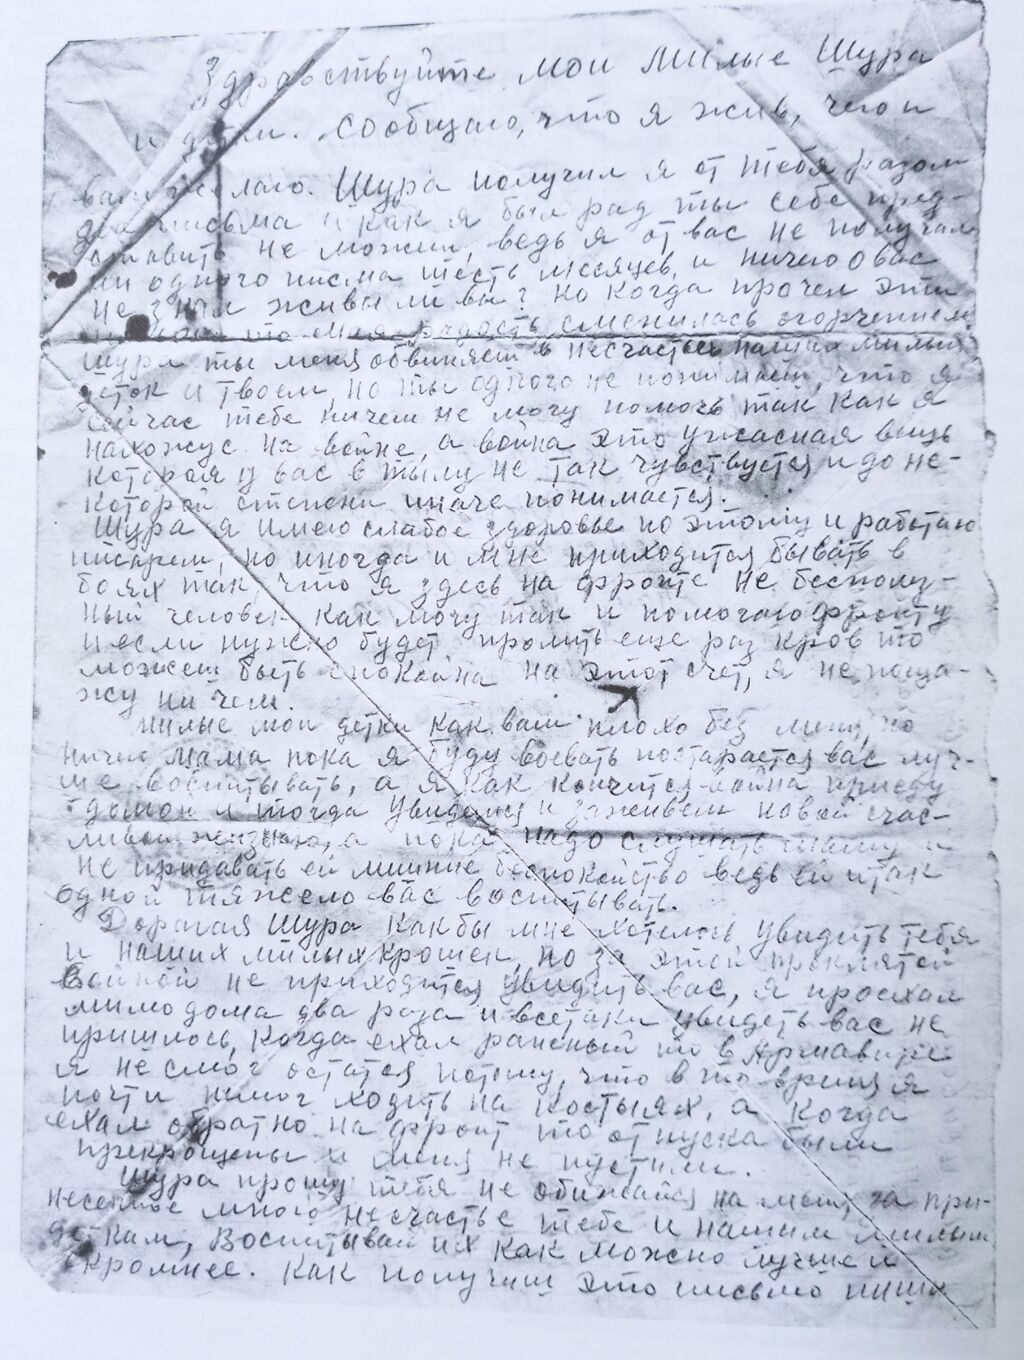 Здравствуйте мои милые Шура
и детки. Сообщаю, что я жив, чего и
вам желаю. Шура получил я от тебя разом
два письма и как я был рад ты себе пред-
ставить не можеш, ведь я от вас не получал
ни одного писма шесть месяцев, и ничего о вас
не знал живы ли вы? Но когда прочел эти
то моя радость сменилась огорчением
Шура ты меня обвиняеш в несчастье наших милых
деток и твоем, но ты одного не понимаеш, что я
сейчас тебе ничем не могу помочь так как я
нахожус на войне, а война это ужасная вещь
которая у вас в тылу не так чувствуется и до не-
которой степени иначе понимается.
Шура я имею слабое здоровье по этому и работаю
писарем, но иногда и мне приходится бывать в
боях так, что я здесь на фронте не бесполез-
ный человек как могу так и помогаю фронту
и если нужно будет пролить еще раз кров то
можеш быть спокойна на этот счет, я не поща-
жу ни чем.
Милые мои детки как вам плохо без меня, но
ничего мама пока я буду воевать постарается вас луч-
ше воспитывать, а я как кончится война приеду
домой и тогда увидимся и заживем новой счас-
ливой жизнью, а пока надо слушать маму и
не придавать ей лишние беспокойство ведь ей итак
одной тяжело вас воспитывать.
Дорогая Шура как бы мне хотелось увидить тебя
и наших милых крошек, но за этой проклятой
войной не приходится увидить вас, я проехал
мимо дома два раза и всетаки увидеть вас не
пришлось, когда ехал раненый то в Армавире
я не смог остатся потому, что в то время я
почти не мог ходить на костылях, а когда
ехал обратно на фронт то отпуска были
прекрощены и меня не пустили.
Шура прошу тебя не обижайся на меня, за при-
несенное мною несчастье тебе и нашим милым
деткам, Воспитывай их как можно лучше и
скромнее. Как получиш это письмо пиши